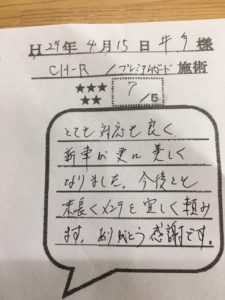 H29年4月15日 様
CH-R /プレミアムガード 施術
★★★
★★
7
/5
とても対応も良く
新車が更に美しく
なりました。今後とも
末長くメンテを宜しく頼み
ます。ありがとう感謝です。